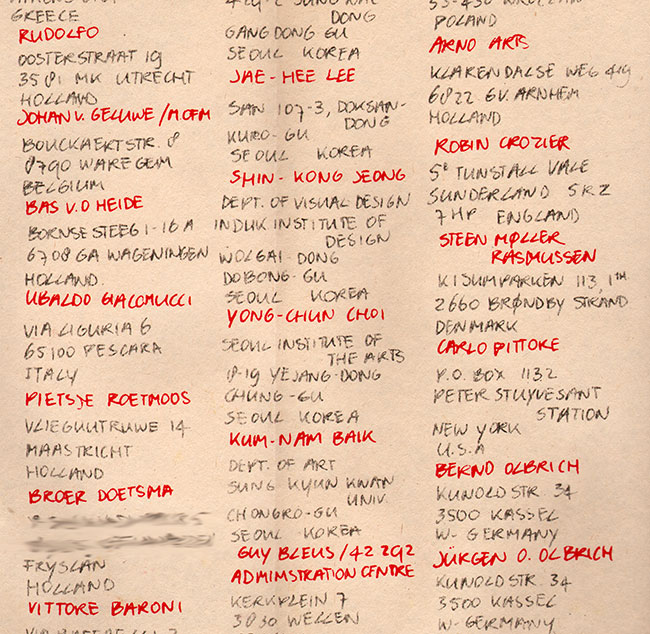 GREECE
RUDOLFO
OOSTERSTRAAT 19
3581 MK UTRECHT
HOLLAND
JOHAN V. GELUWE / MOFM
BOUCKAERTSTR. 8
8790 WAREGEM
BELGIUM
BAS V.D HEIDE
BORNSESTEEG 1-16 A
6708 GA WAGENINGEN
HOLLAND.
UBALDO GIACOMUCCI
VIA LIGURIA 6
65100 PESCARA
ITALY
PIETSJE ROETMOOS
VLIEGUUTRUWE 14
MAASTRICHT
HOLLAND
BROER DOETSMA
FRYSLÂN
HOLLAND
VITTORE BARONI
DONG
GANGDONG GU
SEOUL KOREA
JAE-HEE LEE
SAN 107-3, DOKSAN-
DONG
KURO-GU
SEOUL KOREA
SHIN-KONG JEONG
DEPT. OF VISUAL DESIGN
INDUK INSTITUTE OF
DESIGN
WOLGAI-DONG
DOBONG-GU
SEOUL KOREA
YONG-CHUN CHOI
SEOUL INSTITUTE OF
THE ARTS
8-19 YEJANG-DONG
CHUNG-GU
SEOUL KOREA
KUM-NAM BAIK
DEPT. OF ART
SUNG KYUN KWAN
UNIV.
CHONGRO-GU
SEOUL KOREA
GUY BLEUS / 42 292
ADMIMSTRATION CENTRE
KERKPLEIN 7
3830 WELLEN
POLAND
ARNO ARTS
KLARENDALSE WEG 419
6822 GV. ARNHEM
HOLLAND
ROBIN CROZIER
5B TUNSTALL VALE
SUNDERLAND SR2
7HP ENGLAND
STEEN MØLLER
RASMUSSEN
KISUMPARKEN 113, 1TH
2660 BRØNDBY STRAND
DENMARK
CARLO PITTORE
P.O. BOX 1132
PETER STUYVESANT
STATION
NEW YORK
U.S.A
BERND OLBRICH
KUNOLDSTR 34
3500 KASSEL
W-GERMANY
JÜRGEN O. OLBRICH
KUNOLDSTR. 34
3500 KASSEL
W-GERMANY